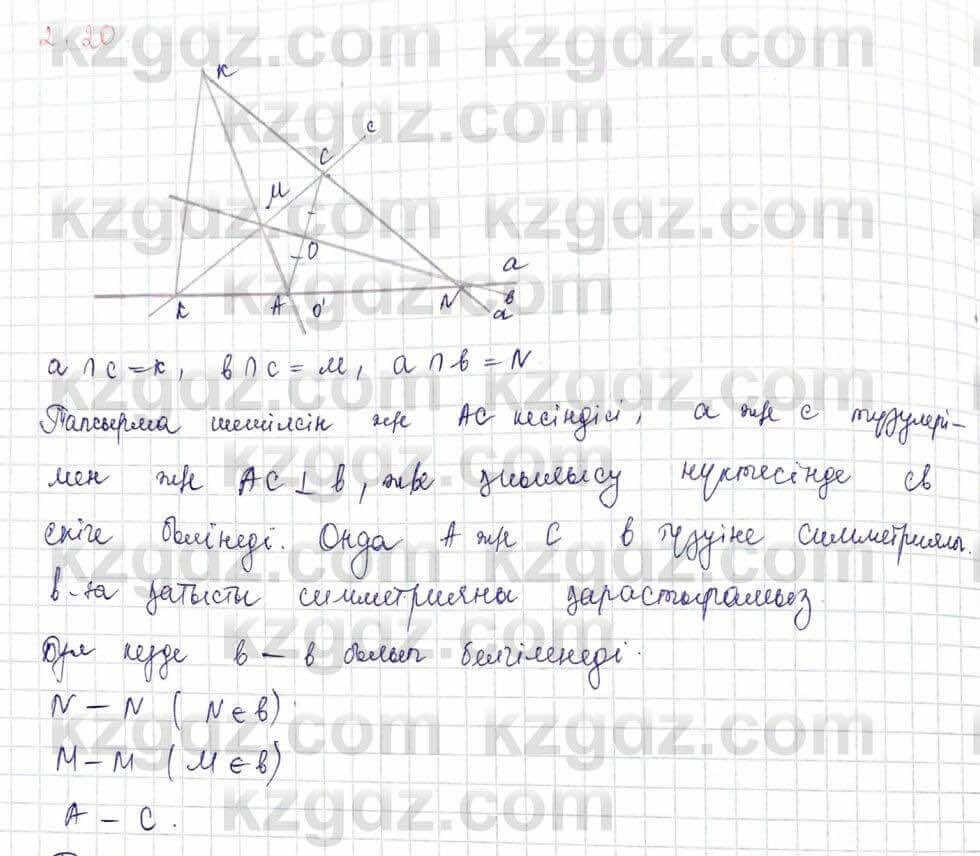 2.20
K
c
C
M
O
a
K
A
O'
N
в
a'
a ∩ c = к, в ∩ c = M, a ∩ b = N
Тапсырма шешілсін және AC кесіндісі, a және c түзулері-
мен және AC ⊥ b, және қиылысу нүктесінде св
екіге бөлінеді. Онда A және C в түзуіне симметриялы.
в-ға қатысты симметрияны қарастырамыз
Бұл кезде в – в болып белгіленеді.
N – N ( N ∈ в)
M – M ( M ∈ в)
A – C.
kzgdz.com